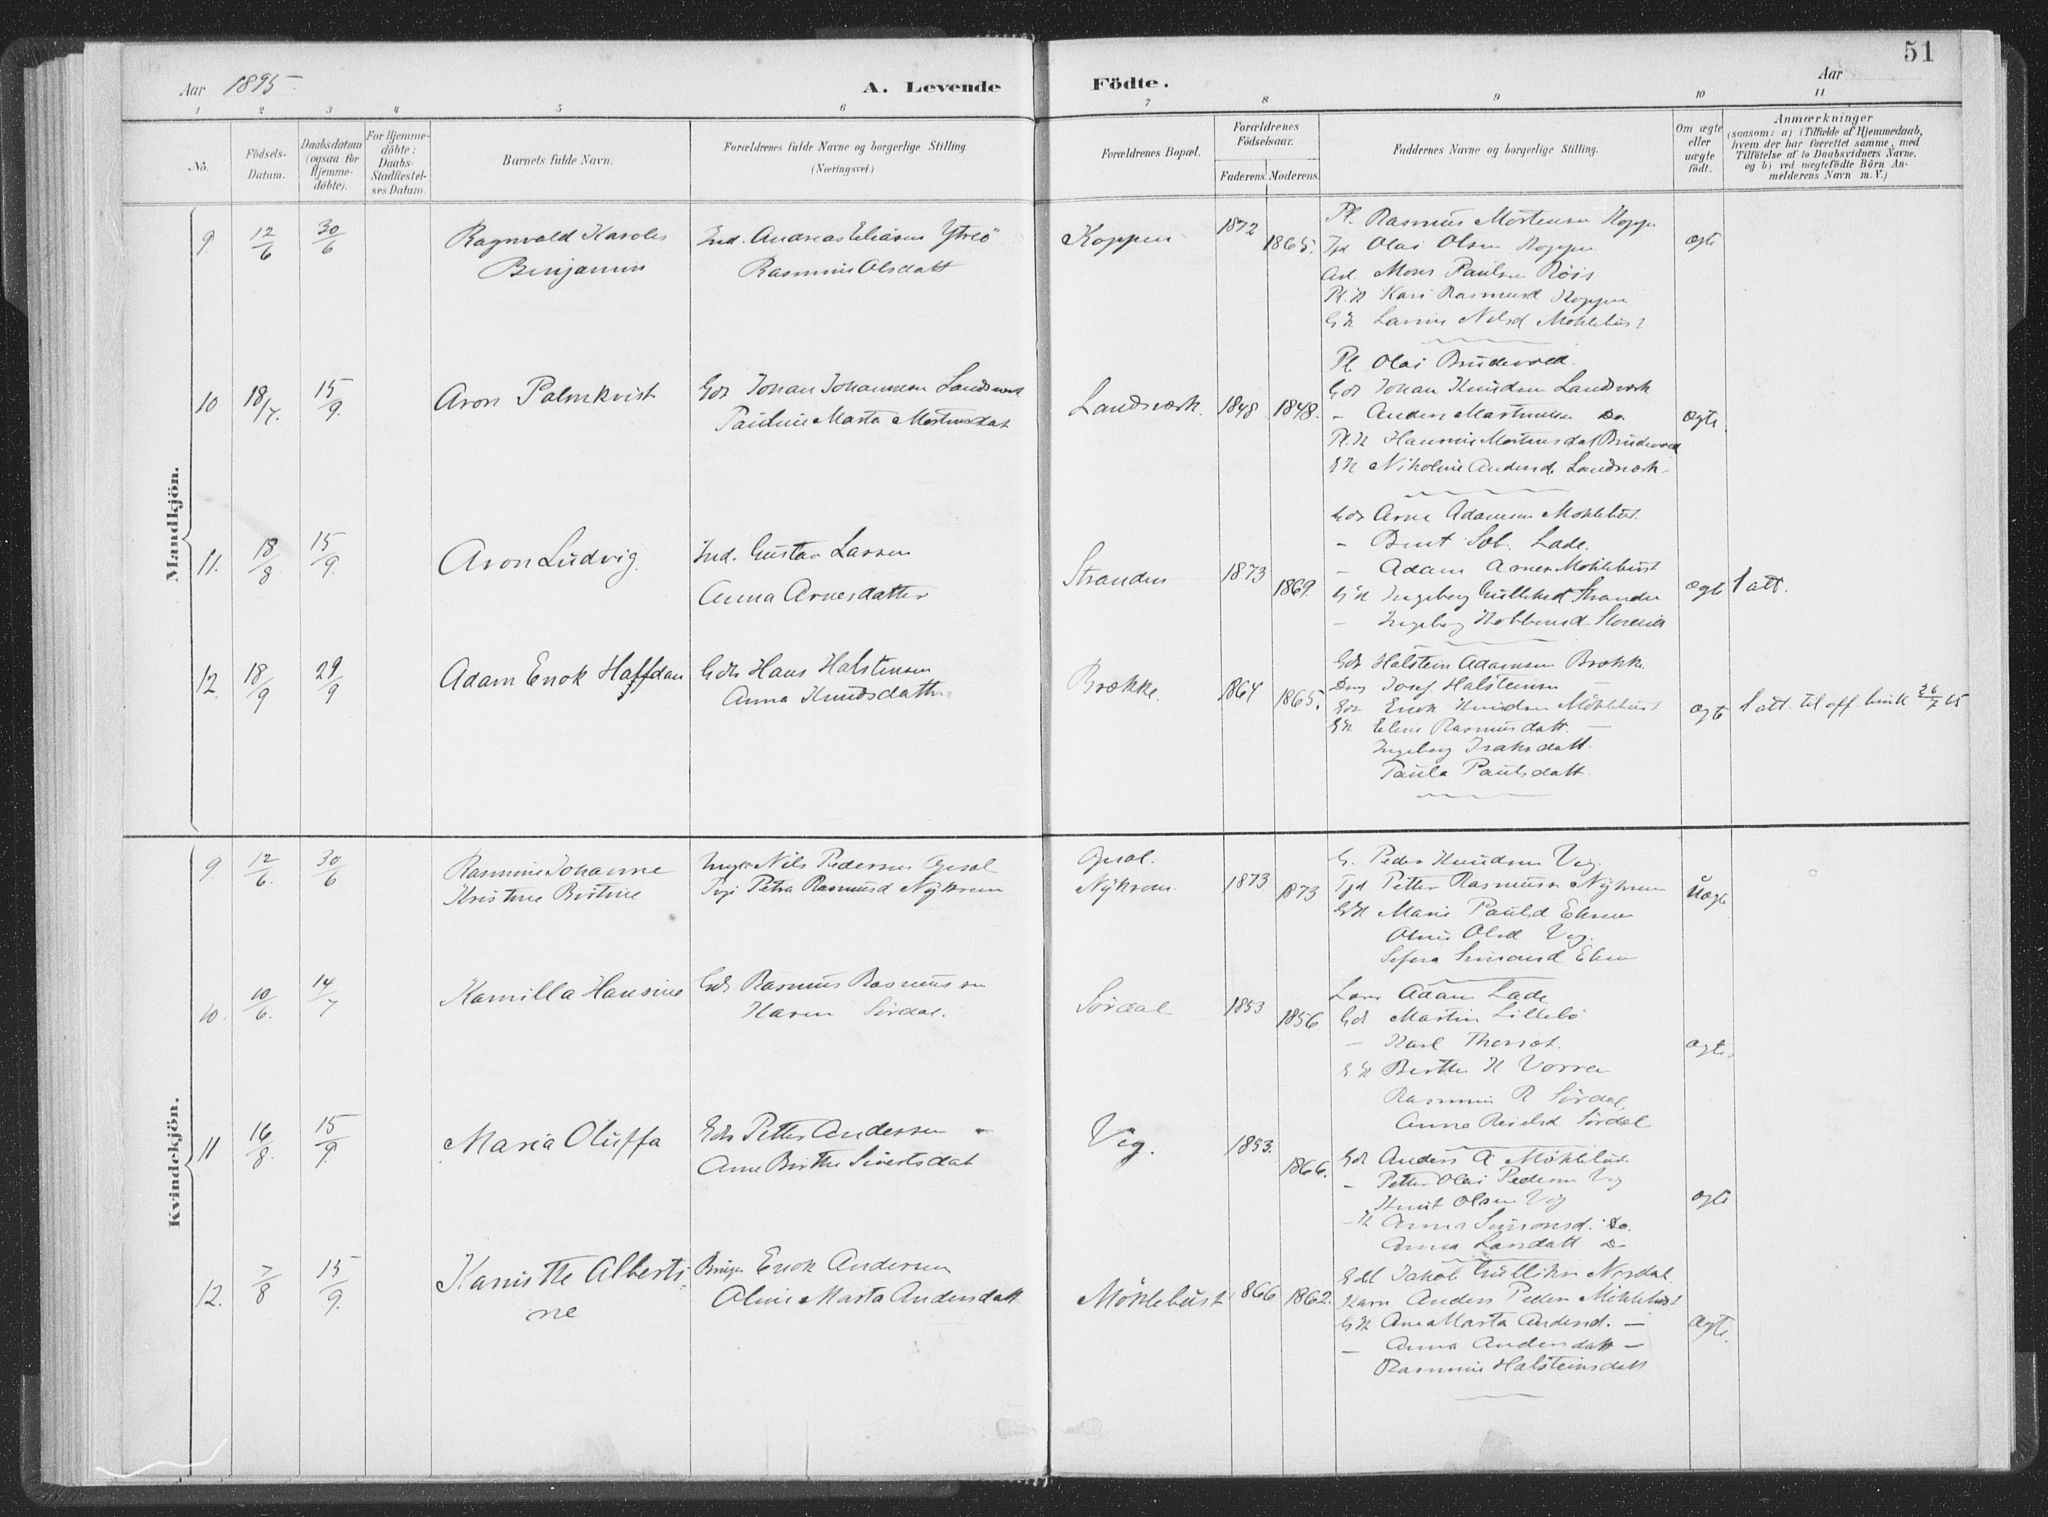 51
Aar 1895
A. Levende Födte.
Aar
1 2 3 4 5 6 7 8 9 10 11
No.
Födsels-Datum.
Daabsdatum (ogsaa for Hjemme-döbte).
For Hjemme-döbte: Daabs-Stadfæstel-ses Datum.
Barnets fulde Navn.
Forældrenes fulde Navne og borgerlige Stilling. (Næringsvei)
Forældrenes Bopæl.
Forældrenes Födselsaar.
Faderens. Moderens.
Faddernes Navne og borgerlige Stilling.
Om ægte eller uægte födt.
Anmærkninger
(saasom: a) i Tilfælde af Hjemmedaab, hvem der har forrettet samme, med Tilföielse af to Daabsvidners Navne, og b) ved uægtefödte Börn An-melderens Navn m. V.)
Mandkjön.
9 12/6 30/6
Ragnvald Karoles
Benjamin
Ind. Andreas Eliasen Ytreö
Rasmine Olsdatt
Koppen
1872
1865.
Pl. Rasmus Mortensen Koppe
Olai Olsen Koppen
Moses Paulsen Röis
Pl. K Kari Rasmusd Koppen
GK Larsine Nilsd Möklebust
ægte
10 18/7. 15/9.
Aron Palmkvist
Gdr Johan Johannsen Landsverk
Pauline Marta Mortensdat
Landsværk. 1848 1848.
Pl Olai Brudevold.
Gdr Johan Knudsen Landsverk
- Anders Martinusen Do.
Pl. K Hansine Mortensdat Brudevold
GK Nikoline Andersd. Landsværk
ægte.
11. 18/8. 15/9.
Aron Ludvig.
Ind. Gustav Larsen
Anna Arnesdatter
Stranden
1873
1869.
Gdr Arne Adamsen Möklebust.
- Bent Lade.
- Adam Arnes Möklebust
GK Ingeborg Gulliksd Stranden
- Ingeborg
ægte
1 att.
12. 18/9 29/9
Adam Enok Haffdan
Gdr Hans Halstensen
Anna Knudsdatter
Brække.
1864
1865.
Gdr Halstein Adamsen Brække
Dreng Josef Halsteinsen
Gdr Enok Knudsen Möklebust
GK Eline Rasmusdatt -
Ingeborg Isaksdatt.
Paula Paulsdatt.
ægte
1 att. til off. bruk 26/7 65
Kvindekjön.
9. 12/6. 30/6
Rasmine Johanne
Kristine Bertine
Ungk. Nils Pedersen Opsal
Pige Petra Rasmusd Nykrem
Opsal.
Nykrem.
1873
1873
G. Peder Knudsen Veg.
Petter Rasmussen Nykrem
GK Marie Paulsd Ekrem
Oline Olsd Veg.
Sefora Simonsd Ekrem
Uægte
10. 10/6. 14/7
Kamilla Hansine
Gdr Rasmus Rasmussen
Karen Sördal.
Sördal
1853
1856
Adam Lade
Gdr Martin Lillebö
- Karl
GK Berthe K Vorren
Rasmine R Sördal,
Anna Sördal
ægte
11 16/8. 15/9.
Maria Oluffa
Gdr Petter Andersen
Ane Berthe Sivertsdat
Veg.
1853.
1866.
Gdr Anders A Möklebust.
- Petter Olai Pedersen Veg
Knut Olsen Veg
- K Anna Simonsd. Do.
Anna Larsdatt Do
ægte
12. 7/8 15/9.
Kanitte Alberti
ne
Enok Andersen
Oline Marta Andersdatt
Möklebust 1866 1862.
Gdr Jakob Gulliksen Nesdal.
Anders Peder Möklebust
GK Ane Marta Andersd. -
- Anna Andersdatt -
Rasmine Halsteinsdatt
ægte.